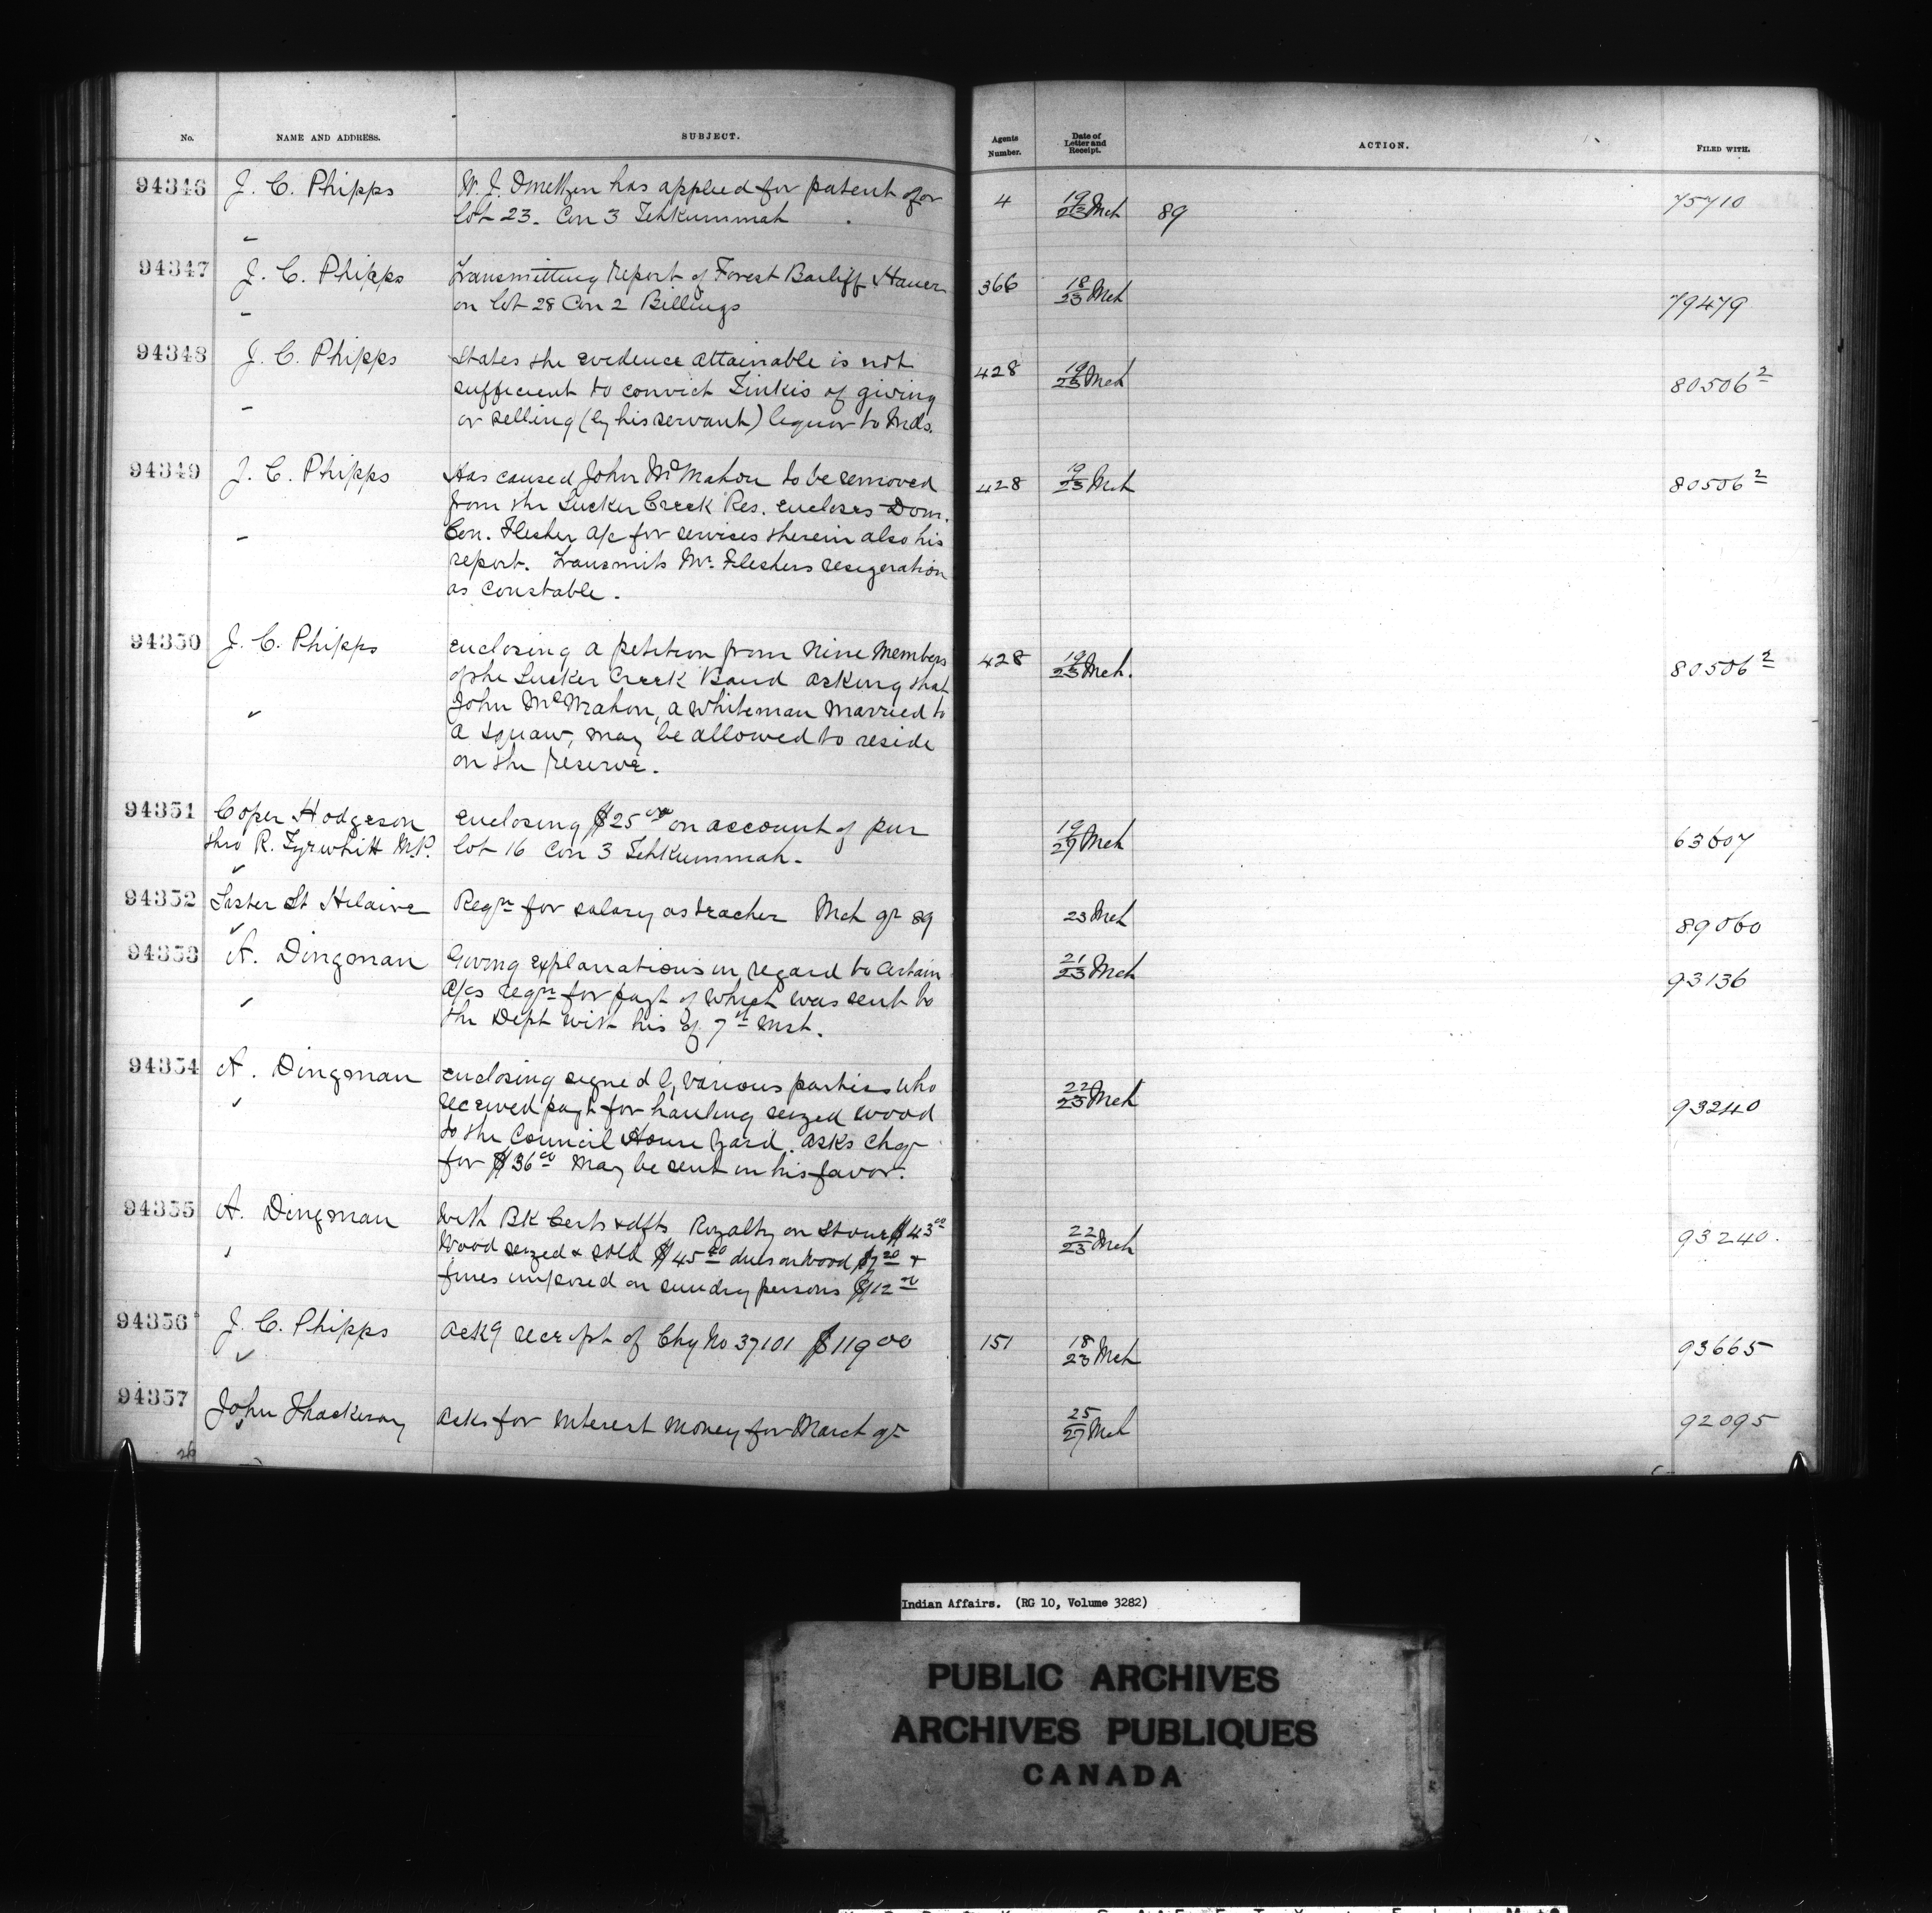 No. NAME AND ADDRESS. SUBJECT. Agents Number. Date of Letter and Receipt. ACTION. FILED WITH.
94346 J. C. Phipps W. J. has applied for patent for 4 19/23 Mch 89 75710
lot 23. Con 3 Tehkummah
94347 J. C. Phipps Transmitting report of Forest Bailiff Haner 366 18/23 Mch 79479
on lot 28 Con 2 Billings
94348 J. C. Phipps States the evidence attainable is not 428 19/23 Mch 80506 2
sufficient to convict Tinkis of giving
or selling (by his servant) liquor to Inds.
94349 J. C. Phipps Has caused John McMahon to be removed 428 19/23 Mch 80506 2
from the Sucker Creek Res. encloses Dom.
Con. Flesher a/c for services therein also his
report. Transmits Mr. Fleshers resignation
as constable.
94350 J. C. Phipps enclosing a petition from nine members 428 19/23 Mch. 80506 2
of the Sucker Creek Band asking that
John McMahon, a whiteman married to
a squaw, may be allowed to reside
on the reserve.
94351 Coper Hodgeson enclosing $25 00 on account of pur 19/27 Mch 63607
thro R. Tyrwhitt M.P. lot 16 Con 3 Tehkummah.
94352 Sister St Hilaire Reqn for salary as teacher Mch qr 89 23 Mch 89060
94353 A. Dingman Giving explanations in regard to certain 21/23 Mch 93136
a/cs reqn for payt of which was sent to
the Dept with his of 7th Inst.
94354 A. Dingman enclosing signed by various parties who 22/23 Mch 93240
received payt for hauling seized wood
to the Council House yard. asks chq
for $36 00 may be sent in his favor.
94355 A. Dingman With BK Certs & dfts Royalty on Stone $43 00 22/23 Mch 93240.
Wood seized & sold $45 40 dues on wood $7 20 &
fines imposed on sundry persons $12 00
94356 J. C. Phipps ackg receipt of Chq No 37101 $119 00 151 18/23 Mch 93665
94357 John Thackeray asks for interest money for March qr 25/27 Mch 92095
26
Indian Affairs. (RG 10, Volume 3282)
PUBLIC ARCHIVES
ARCHIVES PUBLIQUES
CANADA